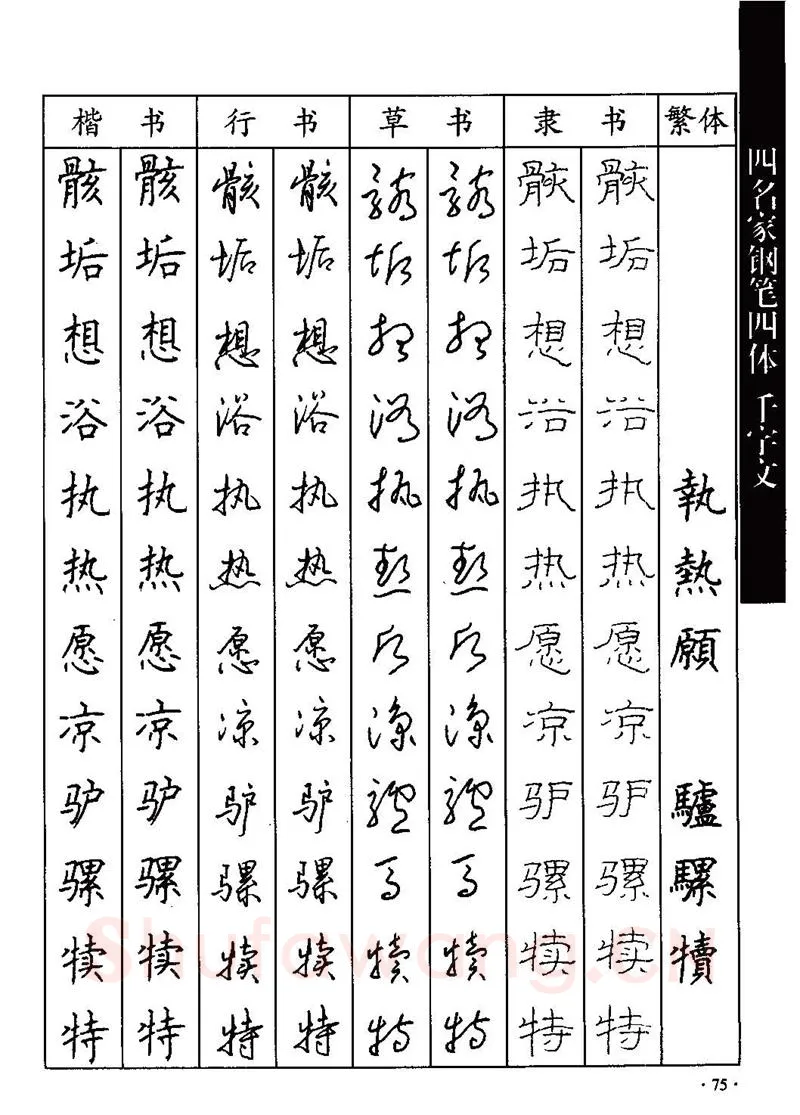 楷 书 行 书 草 书 隶 书 繁体
骸 骸 骸 骸 骸 骸 骸 骸
垢 垢 垢 垢 垢 垢 垢 垢
想 想 想 想 想 想 想 想
浴 浴 浴 浴 浴 浴 浴 浴
执 执 执 执 执 执 执 执 執
热 热 热 热 热 热 热 热 熱
愿 愿 愿 愿 愿 愿 愿 愿 願
凉 凉 凉 凉 凉 凉 凉 凉
驴 驴 驴 驴 驴 驴 驴 驴 驢
骡 骡 骡 骡 骡 骡 骡 骡 騾
犊 犊 犊 犊 犊 犊 犊 犊 犢
特 特 特 特 特 特 特 特
四名家钢笔四体 千字文
Shufawang.CN
·75·